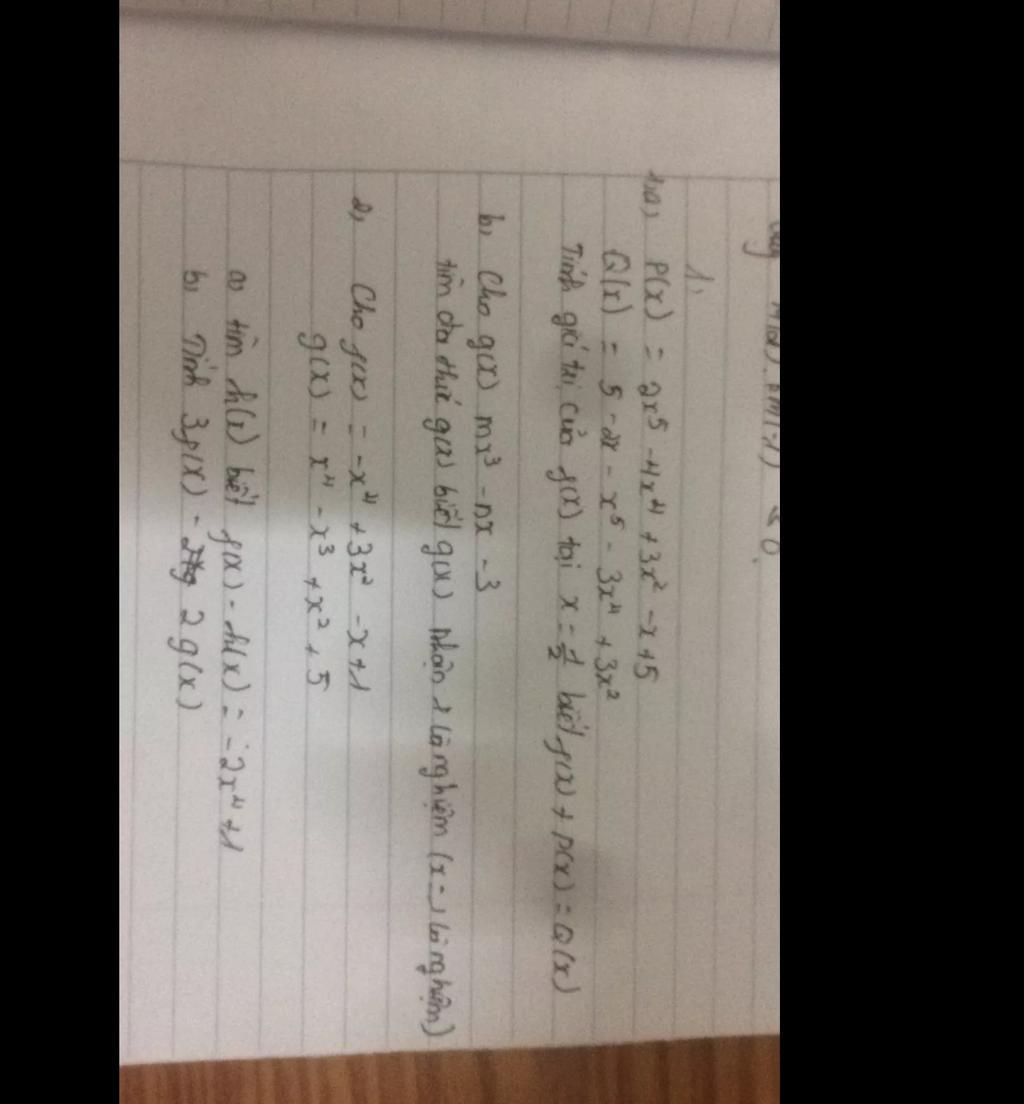 1,
1,a, P(x) = 2x⁵ - 4x⁴ + 3x² - x + 5
Q(x) = 5 - 2x - x⁵ - 3x⁴ + 3x²
Tính giá trị của f(x) tại x = 1/2 biết f(x) + P(x) = Q(x)
b, Cho g(x) mx³ - nx - 3
tìm đa thức g(x) biết g(x) nhận 1 là nghiệm (x = 1 là nghiệm)
2, Cho f(x) = -x⁴ + 3x² - x + 1
g(x) = x⁴ - x³ + x² + 5
a, tìm h(x) biết f(x) - h(x) = -2x⁴ + 1
b, Tính 3f(x) - 2g(x)